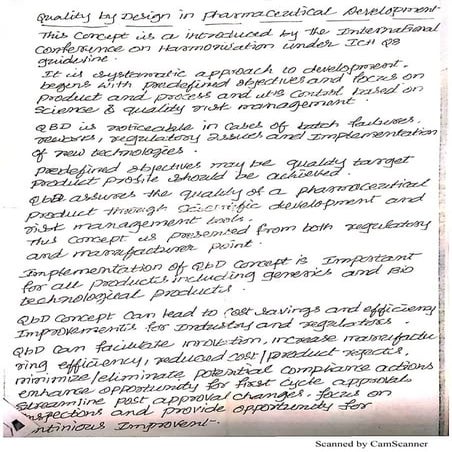 Quality by Design in Pharmaceutical Development
This concept is a introduced by the International
Conference on Harmonisation under ICH Q8
guideline.
It is systematic approach to development,
begins with predefined objectives and focus on
product and process and its control based on
Science & quality risk management.
QBD is noticeable in cases of batch failures,
reworks, regulatory issues and Implementation
of new technologies.
Predefined objectives may be quality target
Product profile should be achieved.
QbD assures the quality of a pharmaceutical
product through scientific development and
risk management tools.
This concept is presented from both regulatory
and manufacturer point.
Implementation of QbD concept is Important
for all products including generics and Bio
technological products.
QbD concept can lead to cost savings and efficiency
Improvements for Industry and regulators.
QbD can facilitate innovation, increase manufactu
ring efficiency, reduced cost/product rejects,
minimize/eliminate potential compliance actions
enhance opportunity for first cycle approval,
streamline post approval changes, focus on
inspections and provide opportunity for
ntinious Improvent-.
Scanned by CamScanner